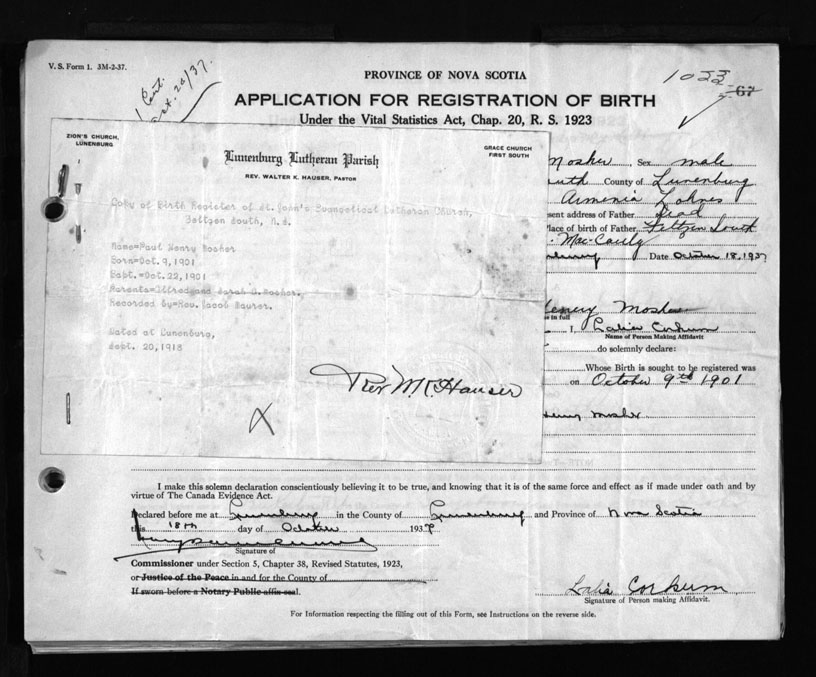 V. S. Form 1. 3M-2-37.
1 Cent.
Oct. 20/37.
1023
67
PROVINCE OF NOVA SCOTIA
APPLICATION FOR REGISTRATION OF BIRTH
Under the Vital Statistics Act, Chap. 20, R. S. 1923
ZION'S CHURCH,
LUNENBURG
Lunenburg Lutheran Parish
REV. WALTER K. HAUSER, PASTOR
GRACE CHURCH
FIRST SOUTH
Copy of Birth Register of St. John's Evangelical Lutheran Church,
South, N.S.
Name=Paul Henry Mosher
Born=Oct. 9, 1901
Bapt.=Oct.22,1901
Parents=Alfred and Sarah Mosher.
Recorded by=Rev. Jacob Maurer.
Dated at Lunenburg,
Sept. 20,1918
Rev W K Hauser
X
Mosher Sex male
uth County of Lunenburg
Armenia Zohnes
sent address of Father Dead
Place of birth of Father Feltzen South
Mac-Cauly
Date October 18, 1937
Henry Mosher
e in full
I, Lalia Corkum
Name of Person Making Affidavit
do solemnly declare:
Whose Birth is sought to be registered was
on October 9th 1901
Henry Mosher
I make this solemn declaration conscientiously believing it to be true, and knowing that it is of the same force and effect as if made under oath and by
virtue of The Canada Evidence Act.
Declared before me at Lunenburg in the County of Lunenburg and Province of Nova Scotia
this 18th day of October 1937
Signature of
Commissioner under Section 5, Chapter 38, Revised Statutes, 1923,
or Justice of the Peace in and for the County of
If sworn before a Notary Public affix seal.
Lalia Corkum
Signature of Person making Affidavit.
For Information respecting the filling out of this Form, see Instructions on the reverse side.